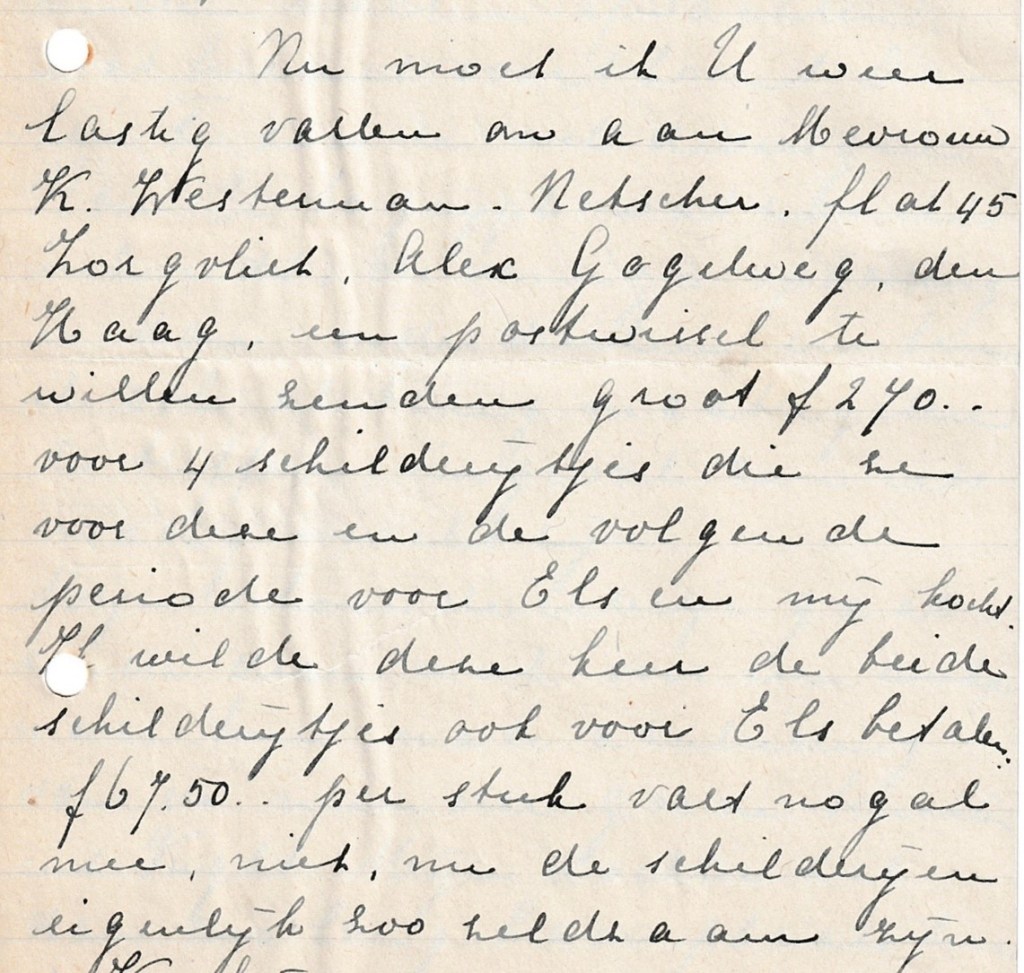 Nu moet ik U weer
lastig vallen om aan Mevrouw
K. Westerman-Netscher, flat 45
Zorgvliet, Alex Gogelweg, den
Haag, een postwissel te
willen zenden groot f 270..
voor 4 schilderijtjes die ze
voor deze en de volgende
periode voor Els en mij kocht.
Ik wilde deze keer de beide
schilderijtjes ook voor Els betalen.
f 67.50.. per stuk valt nog al
mee, niet, nu de schilderijen
eigenlijk zoo zeldzaam zijn.